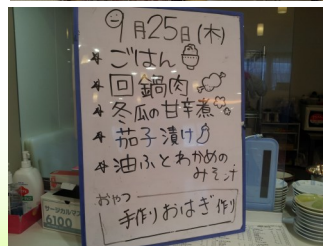 9月25日(木)
ごはん
回鍋肉
冬瓜の甘辛煮
茄子漬け
油ふとわかめの
みそ汁
おやつ
手作りおはぎ作り
サージカルマスク
6100